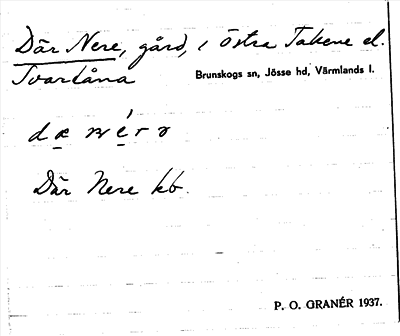 Där Nere, gård, i Östra Takene el.
Tvartåna
Brunskogs sn, Jösse hd, Värmlands l.
Där Nere kb.
P. O. GRANÉR 1937.